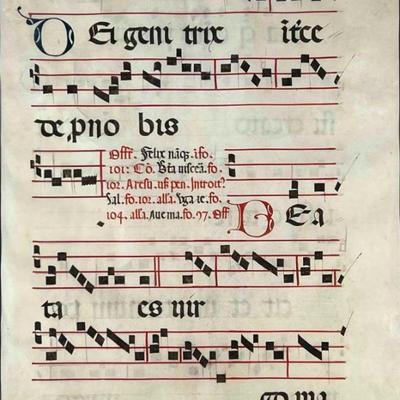 DEi geni trix iter̄ce
de, p̱no bis
Off. Felix nāq̄. īfo.
101: Cō. Bt̄a uiscēa. fo.
102. A resu. usq̄ pen. Introit?
Sal. fo. 101. alla. Uga ie. fo.
104. alla. Aue ma. fo. 97. Off
BEa
ta es uir